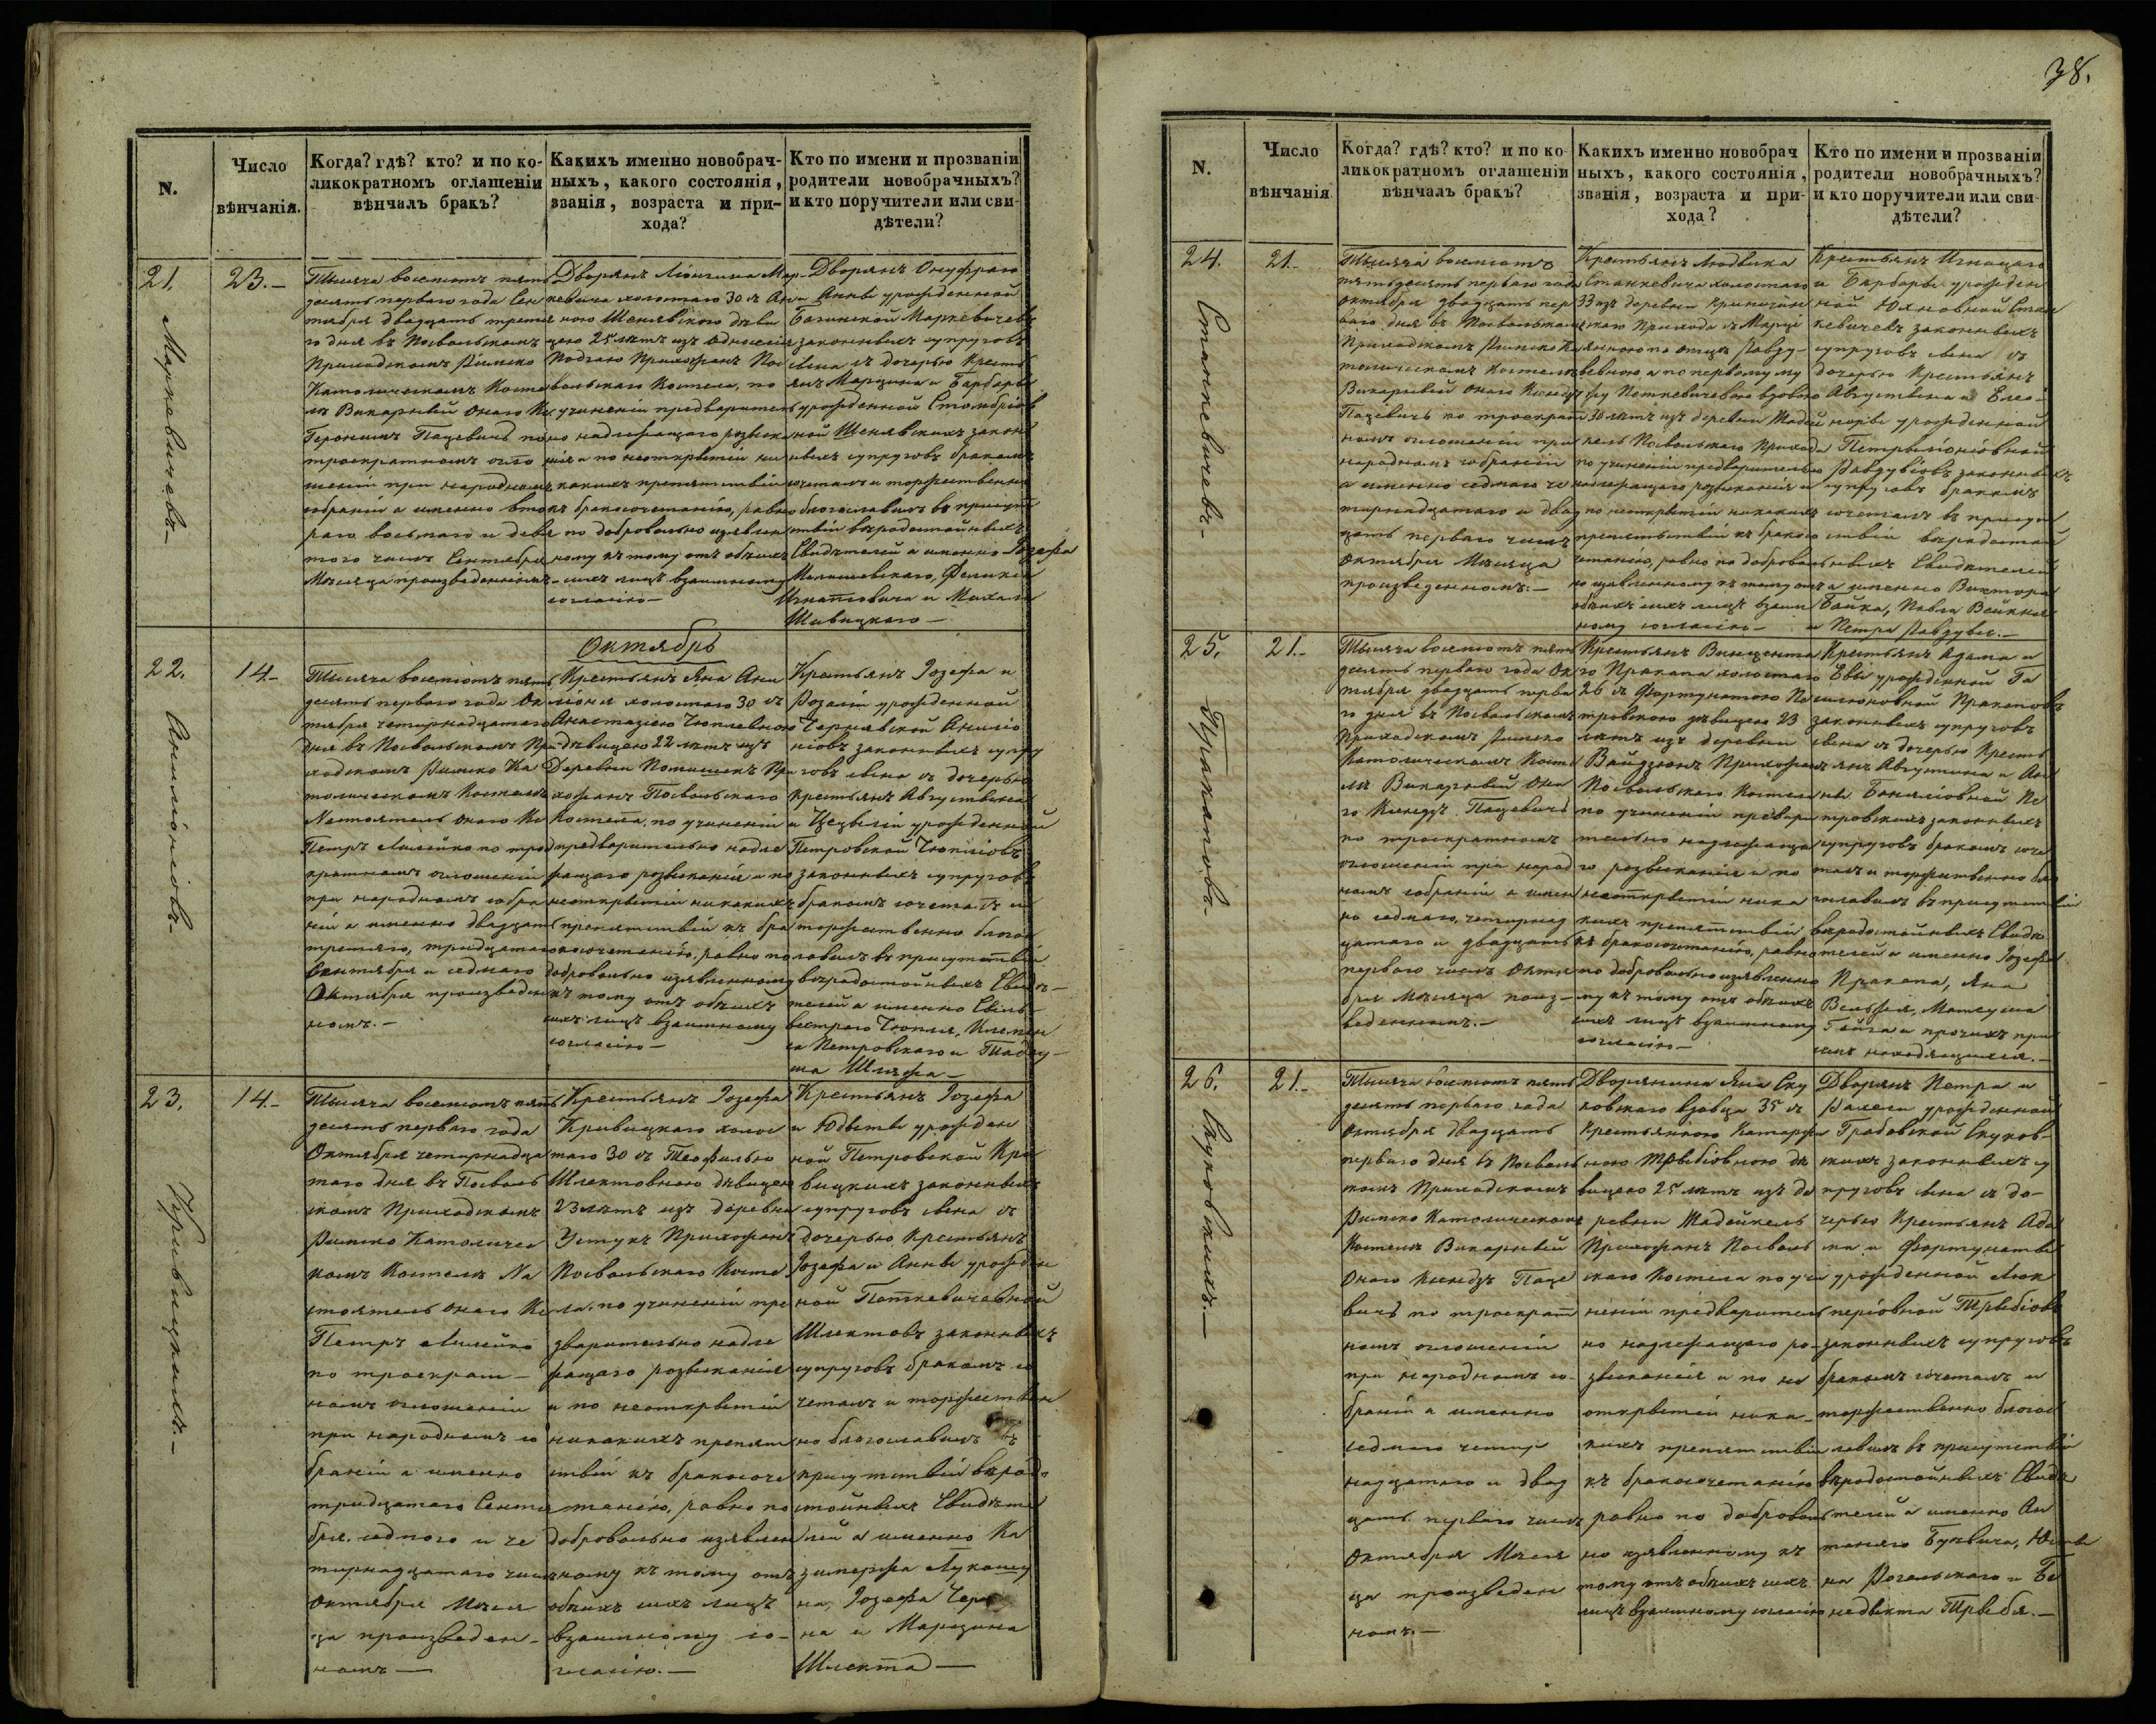 38.
N.
Число
вѣнчанія.
Когда? гдѣ? кто? и по ко-
ликократномъ оглашеніи
вѣнчалъ бракъ?
Какихъ именно новобрач-
ныхъ, какого состоянія,
званія, возраста и при-
хода?
Кто по имени и прозванію
родители новобрачныхъ?
и кто поручители или сви-
дѣтели?
21.
Маркевичевъ
23.
Тысяча восемсотъ пять
десятъ перваго года Сен
тября двадцать третя
го дня въ Посвольскомъ
Приходскомъ Римско
Католическомъ Косте
лѣ Викарный онаго Кс
Геронимъ Пацевичъ по
троекратномъ огло
шеніи при народномъ
собраніи а именно вто
раго восьмаго и девя
того чиселъ Сентября
Мѣсяца произведенномъ
Дворянъ Лонгина Мар-
кевича холостаго 30 съ Ан
ною Шенявскою дѣви
цею 25 лѣтъ изъ
Прихожанъ Пос
вольскаго Костела, по
учиненіи предваритель
но надлежащаго розыска
нія и по неоткрытіи ни
какихъ препятствій
къ бракосочетанію, равно
по добровольно изъявлен
ному къ тому отъ обѣихъ
сихъ лицъ взаимному
согласію
Дворянъ Онуфраго
и Анны урожденной
Багинской Маркевичевъ
законныхъ супруговъ
сына съ дочерью Кресть
янъ Марцина и Барбары
урожденной
Шенявскихъ закон
ныхъ супруговъ бракомъ
сочеталъ и торжественно
благославилъ въ присут
ствіи вѣродостойныхъ
Свидѣтелей а именно Іозефа
Феликса
Игнатовича и Михала
Шивицкаго
Октябрь
22.
Анилюніовъ
14.
Тысяча восемсотъ пять
десятъ перваго года Ок
тября четырнадцатаго
дня въ Посвольскомъ При
ходскомъ Римско Ка
толическомъ Костелѣ
Настоятель онаго Кс
Петръ Лилейко по трое
кратномъ оглошеніи
при народномъ собра
ніи а именно двадцать
третяго, тридцатаго
Сентября и седмаго
Октября произведен
номъ.
Крестьянъ Яна Ани
холостаго 30 съ
Анастазіею Чюплевною
дѣвицею 22 лѣтъ изъ
Деревни При
хожанъ Посвольскаго
Костела, по учиненіи
предварительно надле
жащаго розысканія и по
неоткрытіи никакихъ
препятствій къ бра
косочетанію, равно по
добровольно изъявленному
къ тому отъ обѣихъ
сихъ лицъ взаимному
согласію
Крестьянъ Іозефа и
Розаліи урожденной
Чернявской
законныхъ супру
говъ сына съ дочерью
крестьянъ Августина
и Цецыліи урожденной
Петровской Чюпліовъ
законныхъ супруговъ
бракомъ сочеталъ и
торжественно благо
словилъ въ присутствіи
вѣродостойныхъ Свидѣ-
телей а именно Силь
вестраго Чюпля, Клемен
са Петровскаго и Тадеу-
ша
23.
Кривицкихъ
14.
Тысяча восемсотъ пять
десятъ перваго года
Октября четырнадца
таго дня въ Посволь
скомъ Приходскомъ
Римско Католичес
комъ Костелѣ На
стоятель онаго Кс
Петръ Лилейко
по троекрат-
номъ оглошеніи
при народномъ со
браніи а именно
тридцатаго Сентя
бря седмаго и че
тырнадцатаго чиселъ
Октября Мѣся
ца произведен-
номъ
Крестьянъ Іозефа
Кривицкаго холос
таго 30 съ Теофилею
Шлектовною дѣвицею
23 лѣтъ изъ деревни
Устукъ Прихожанъ
Посвольскаго Косте
ла, по учиненіи пре
дварительно надле
жащаго розысканія
и по неоткрытіи
никакихъ препят
ствій къ бракосоче
танію, равно по
добровольно изъявлен
ному къ тому отъ
обѣихъ сихъ лицъ
взаимному со-
гласію.
Крестьянъ Іозефа
и Юдыты урожден
ной Петровской Кри
вицкихъ законныхъ
супруговъ сына съ
дочерью Крестьянъ
Іозефа и Анны урожден
ной Поткевичовной
Шлектовъ законныхъ
супруговъ бракомъ со
четалъ и торжествен
но благославилъ въ
присутствіи вѣродо
стойныхъ Свидѣте
лей а именно Ка
зимержа Лукашу
на, Іозефа
на и Марцина
Шлекта
N.
Число
вѣнчанія
Когда? гдѣ? кто? и по ко-
ликократномъ оглашеніи
вѣнчалъ бракъ?
Какихъ именно новобрач
ныхъ, какого состоянія,
званія, возраста и при-
хода?
Кто по имени и прозванію
родители новобрачныхъ?
и кто поручители или сви-
дѣтели?
24.
Станкевичевъ
21.
Тысяча восемсотъ
пятьдесятъ перваго года
Октября двадцать пер
ваго дня въ Посвольскомъ
Приходскомъ Римско Ка
толическомъ Костелѣ
Викарный онаго Ксендзъ
Пацевичъ по троекрат
номъ оглошеніи при
народномъ собраніи
а именно седмаго че
тырнадцатаго и двад
цать перваго чиселъ
Октября Мѣсяца
произведенномъ.
Крестьянъ Людвика
Станкевича холостаго
33 изъ деревни
скаго Прихода съ Марце
лянною по отцѣ Равду-
вевною а по первому му
жу Петкевичевою вдовою
30 лѣтъ изъ деревни Жадей
кель Посвольскаго Прихода
по учиненіи предварительно
надлежащаго розысканія и
по неоткрытіи никакихъ
препятствій къ бракосо
четанію, равно по добровол
но изъявленному къ тому отъ
обѣихъ сихъ лицъ взаим
ному согласію
Крестьянъ Игнацаго
и Барбары урожден
ной Юхновной Стан
кевичевъ законныхъ
супруговъ сына съ
дочерью Крестьянъ
Августина и Елео-
норы урожденной
Равдувіовъ законныхъ
супруговъ бракомъ
сочеталъ въ присут
ствіи вѣродостой
ныхъ Свидѣтелей
а именно Виктора
Байка, Павла
и Петра Равдувя.
25.
Пракаповъ
21.
Тысяча восемсотъ пять
десятъ перваго года Ок
тября двадцать перва
го дня въ Посвольскомъ
Приходскомъ Римско
Католическомъ Косте
лѣ Викарный Она
го Ксендзъ Пацевичъ
по троекратномъ
оглошеніи при народ
номъ собраніи а имен
но седмаго, четырнад
цатаго и двадцать
перваго чиселъ Октя
бря Мѣсяца произ-
веденномъ.
Крестьянъ Винцента
го Пракапа холостаго
26 съ Фортунатою Пе
тровскою дѣвицею 23
лѣтъ изъ деревни
Прихожанъ
Посвольскаго Костела
по учиненіи предвари
тельно надлежаща
го розысканія и по
неоткрытіи ника
кихъ препятствій
къ бракосочетанію, равно
по добровольно изъявленно
му къ тому отъ обѣихъ
сихъ лицъ взаимному
согласію
Крестьянъ Адама и
Евы урожденной Га
Пракаповъ
законныхъ супруговъ
сына съ дочерью Кресть
янъ Августина и Ан
ны Пе
тровскихъ законныхъ
супруговъ бракомъ соче
талъ и торжественно бла
гославилъ въ присутствіи
вѣродостойныхъ Свидѣ
телей а именно Іозефа
Пракапа, Яна
Матеуша
и прочихъ при
семъ находящихся.
26.
Скуковскихъ
21.
Тысяча восемсотъ пять
десятъ перваго года
Октября двадцать
перваго дня въ Посволь
скомъ Приходскомъ
Римско Католическомъ
Костелѣ Викарный
Онаго Ксендзъ Паце
вичъ по троекрат
номъ оглошеніи
при народномъ со-
браніи а именно
седмаго четыр
надцатаго и двад
цать перваго чиселъ
Октября Мѣся
ца произведен
номъ.
Дворянина Яна Ску
ковскаго вдовца 35 съ
Крестьянкою Катаржи
ною дѣ
вицею 25 лѣтъ изъ де
ревни Жадейкель
Прихожанъ Посволь
скаго Костела по учи
неніи предваритель
но надлежащаго ро-
зысканія и по не
открытіи ника-
кихъ препятствій
къ бракосочетанію
равно по доброволь
но изъявленному къ
тому отъ обѣихъ сихъ
лицъ взаимному согласію
Дворянъ Петра и
Рахели урожденной
Грабовской Скуков-
скихъ законныхъ су
пруговъ сына съ до-
черью Крестьянъ Ада
ма и Фортунаты
урожденной
законныхъ супруговъ
бракомъ сочеталъ и
торжественно благос
лавилъ въ присутствіи
вѣродостойныхъ Свидѣ
телей а именно Ан
тоняго Буткевича, Юсти
на Рогальскаго и Бе
недыкта